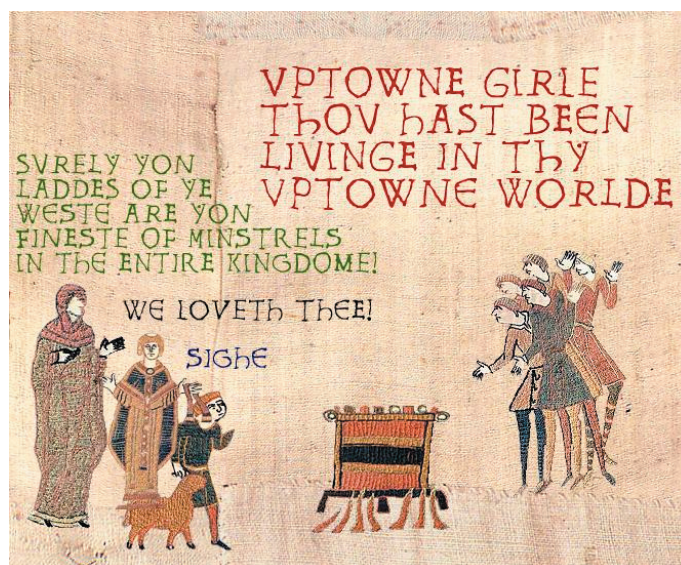 VPTOWNE GIRLE
ThOV hAST BEEN
LIVINGE IN ThY
VPTOWNE WORLDE
SVRELY YON
LADDES OF YE
WESTE ARE YON
FINESTE OF MINSTRELS
IN ThE ENTIRE KINGDOME!
WE LOVETh ThEE!
SIGhE